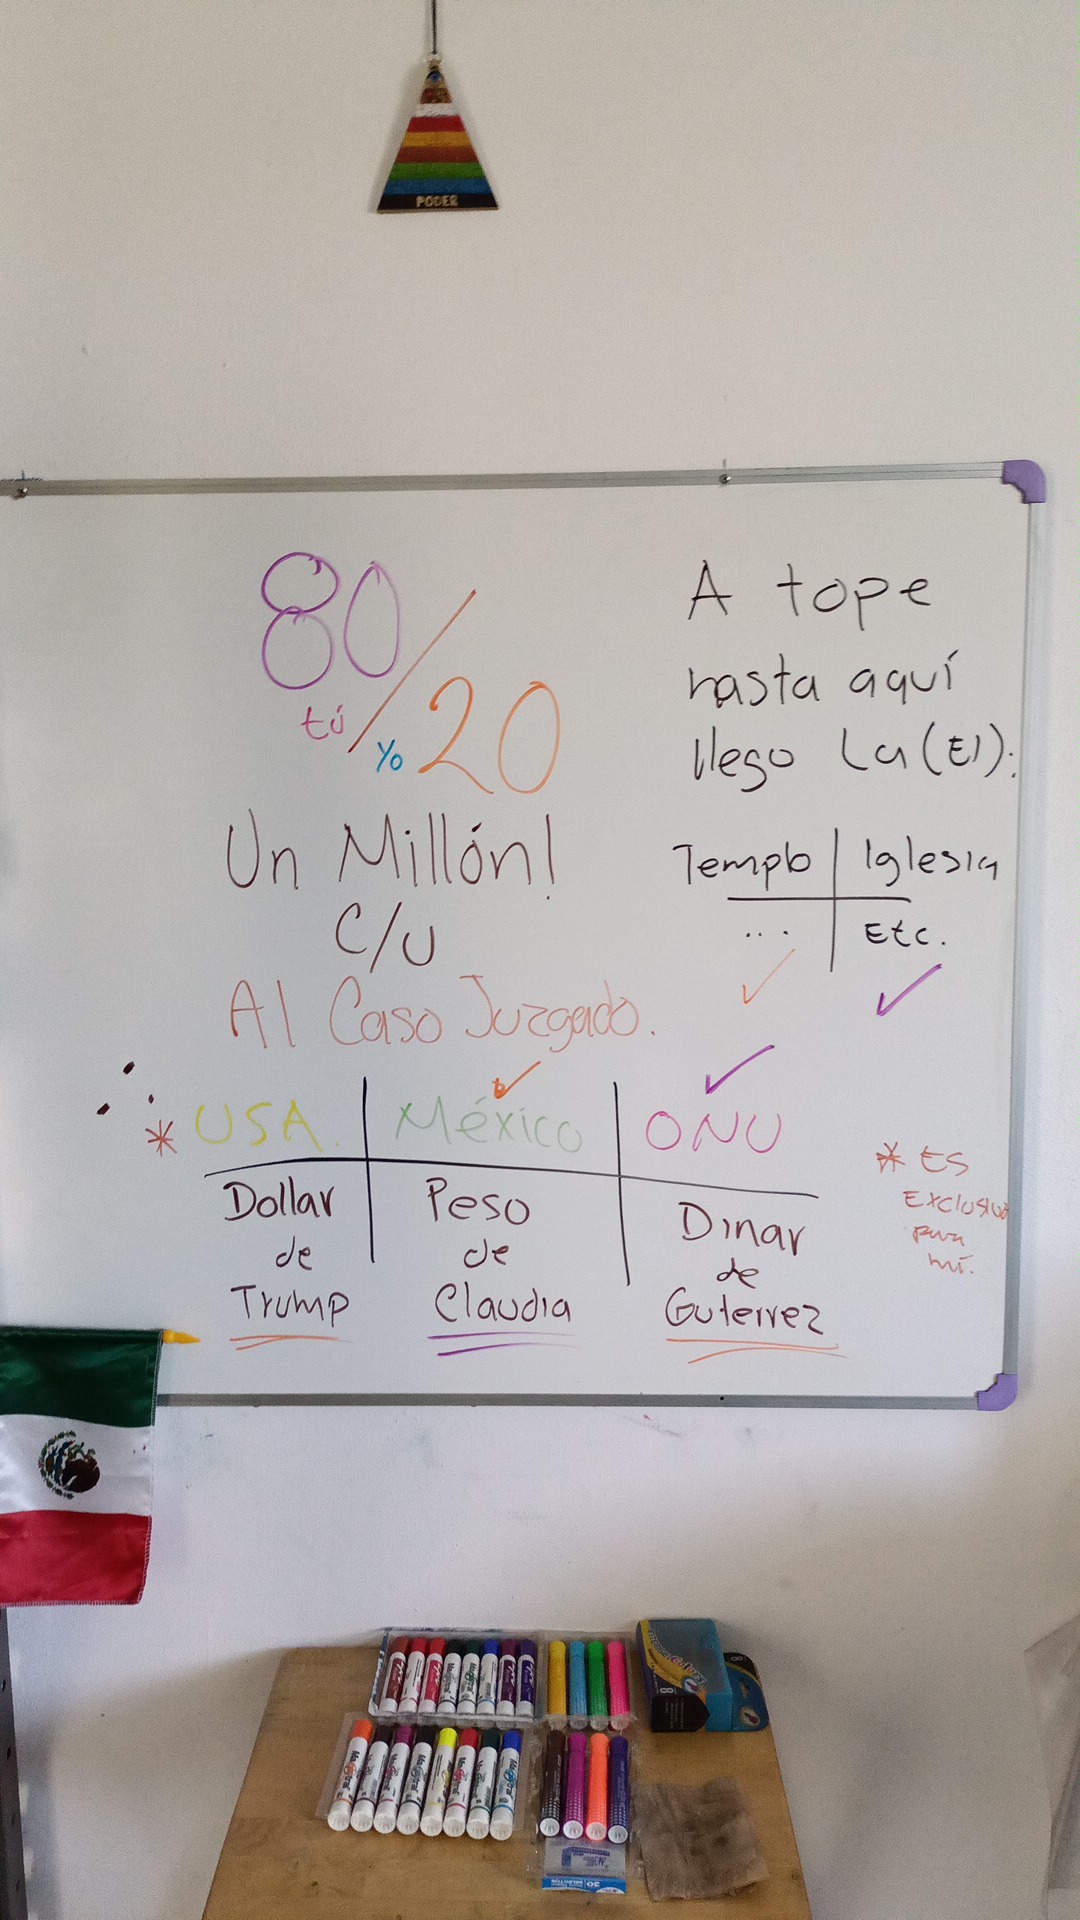 PODER
80/20
tú yo
Un Millón!
C/U
Al Caso Juzgado.
A tope
hasta aquí
llego La (El):
Templo | Iglesia
... | Etc.
* USA. | México | ONU
Dollar | Peso | Dinar
de | de | de
Trump | Claudia | Guterrez
* ES
Exclusivo
para
mí.